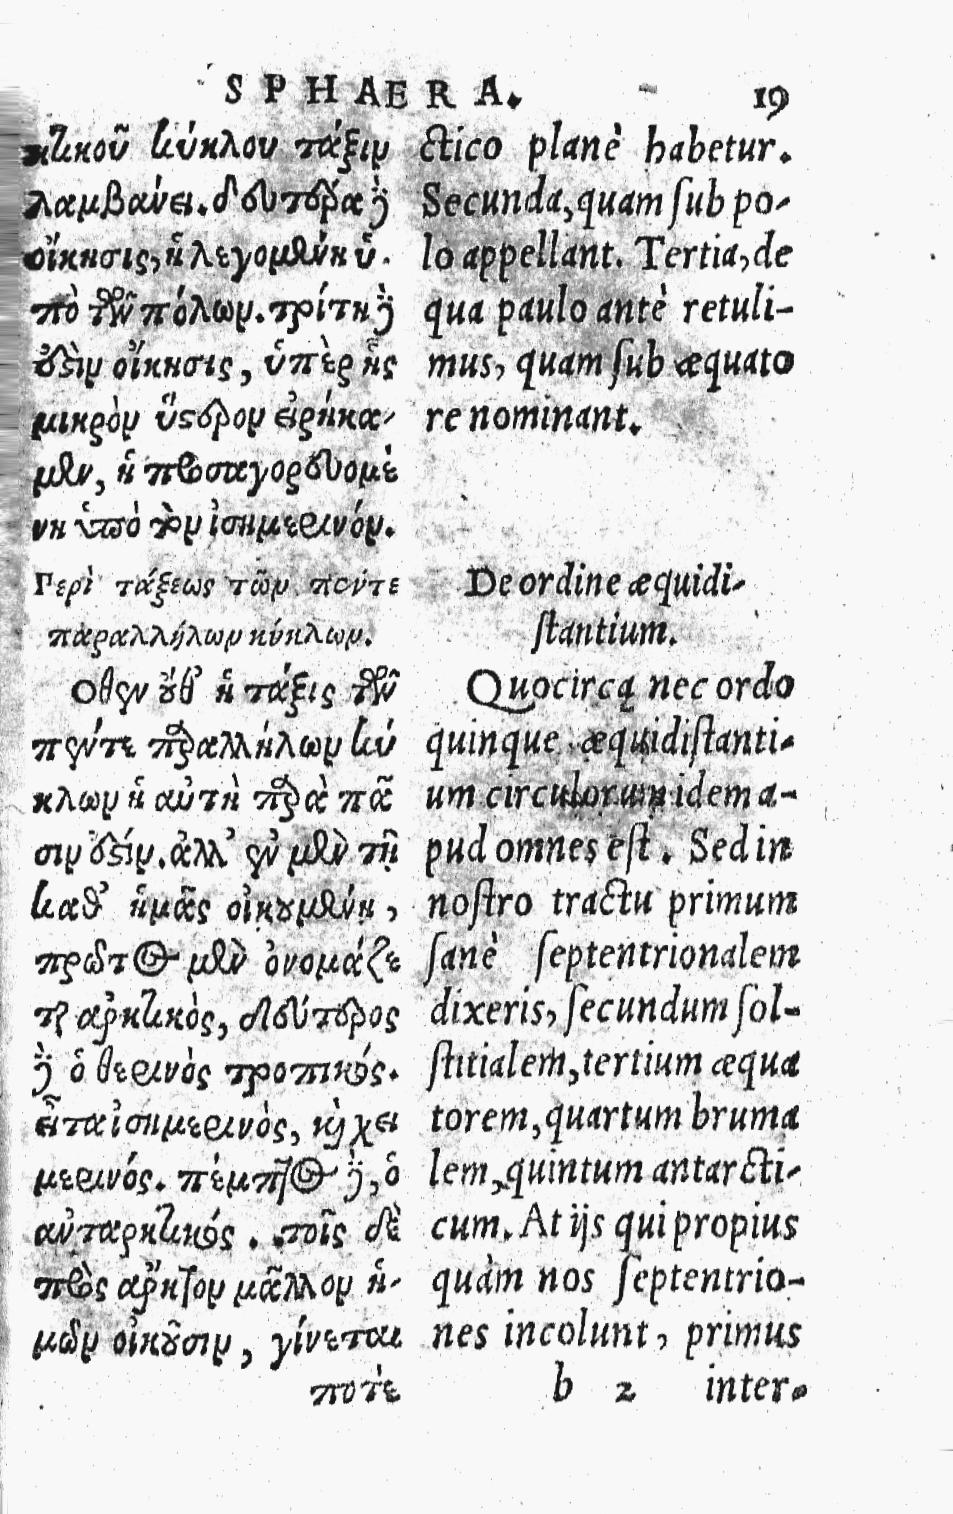 SPHAERA. 19
κτικοῦ κύκλου τάξιν
λαμβάνει. δευτέρα δὲ
οἴκησις, ἡ λεγομένη ὑ-
πὸ τῶν πόλων. τρίτη δὲ
ἐστὶν οἴκησις, ὑπὲρ ἧς
μικρὸν ὕστερον εἰρήκα-
μεν, ἡ προσαγορευομέ
νη ὑπὸ τὸν ἰσημερινόν.
Περὶ τάξεως τῶν πέντε
παραλλήλων κύκλων.
Οθεν οὐδ' ἡ τάξις τῶν
πέντε παραλλήλων κύ
κλων ἡ αὐτὴ παρὰ πᾶ
σιν ἐστίν. ἀλλ' ἐν μὲν τῇ
καθ' ἡμᾶς οἰκουμένῃ,
πρῶτος μὲν ὀνομάζε
ται ἀρκτικὸς, δεύτερος
δὲ ὁ θερινὸς τροπικός.
εἶτα ἰσημερινὸς, καὶ χει
μερινός. πέμπτος δὲ, ὁ
ἀνταρκτικός. τοῖς δὲ
πρὸς ἄρκτον μᾶλλον ἡ-
μῶν οἰκοῦσιν, γίνεται
ποτὲ
ctico planè habetur.
Secunda, quam ſub po-
lo appellant. Tertia, de
qua paulo antè retuli-
mus, quam ſub æquato
re nominant.
De ordine æquidi-
ſtantium.
Quocircą nec ordo
quinque æquidiſtanti-
um circulorum idem a-
pud omnes eſt. Sed in
noſtro tractu primum
ſanè ſeptentrionalem
dixeris, ſecundum ſol-
ſtitialem, tertium æqua
torem, quartum bruma
lem, quintum antarcti-
cum. At ijs qui propius
quàm nos ſeptentrio-
nes incolunt, primus
b 2 inter-